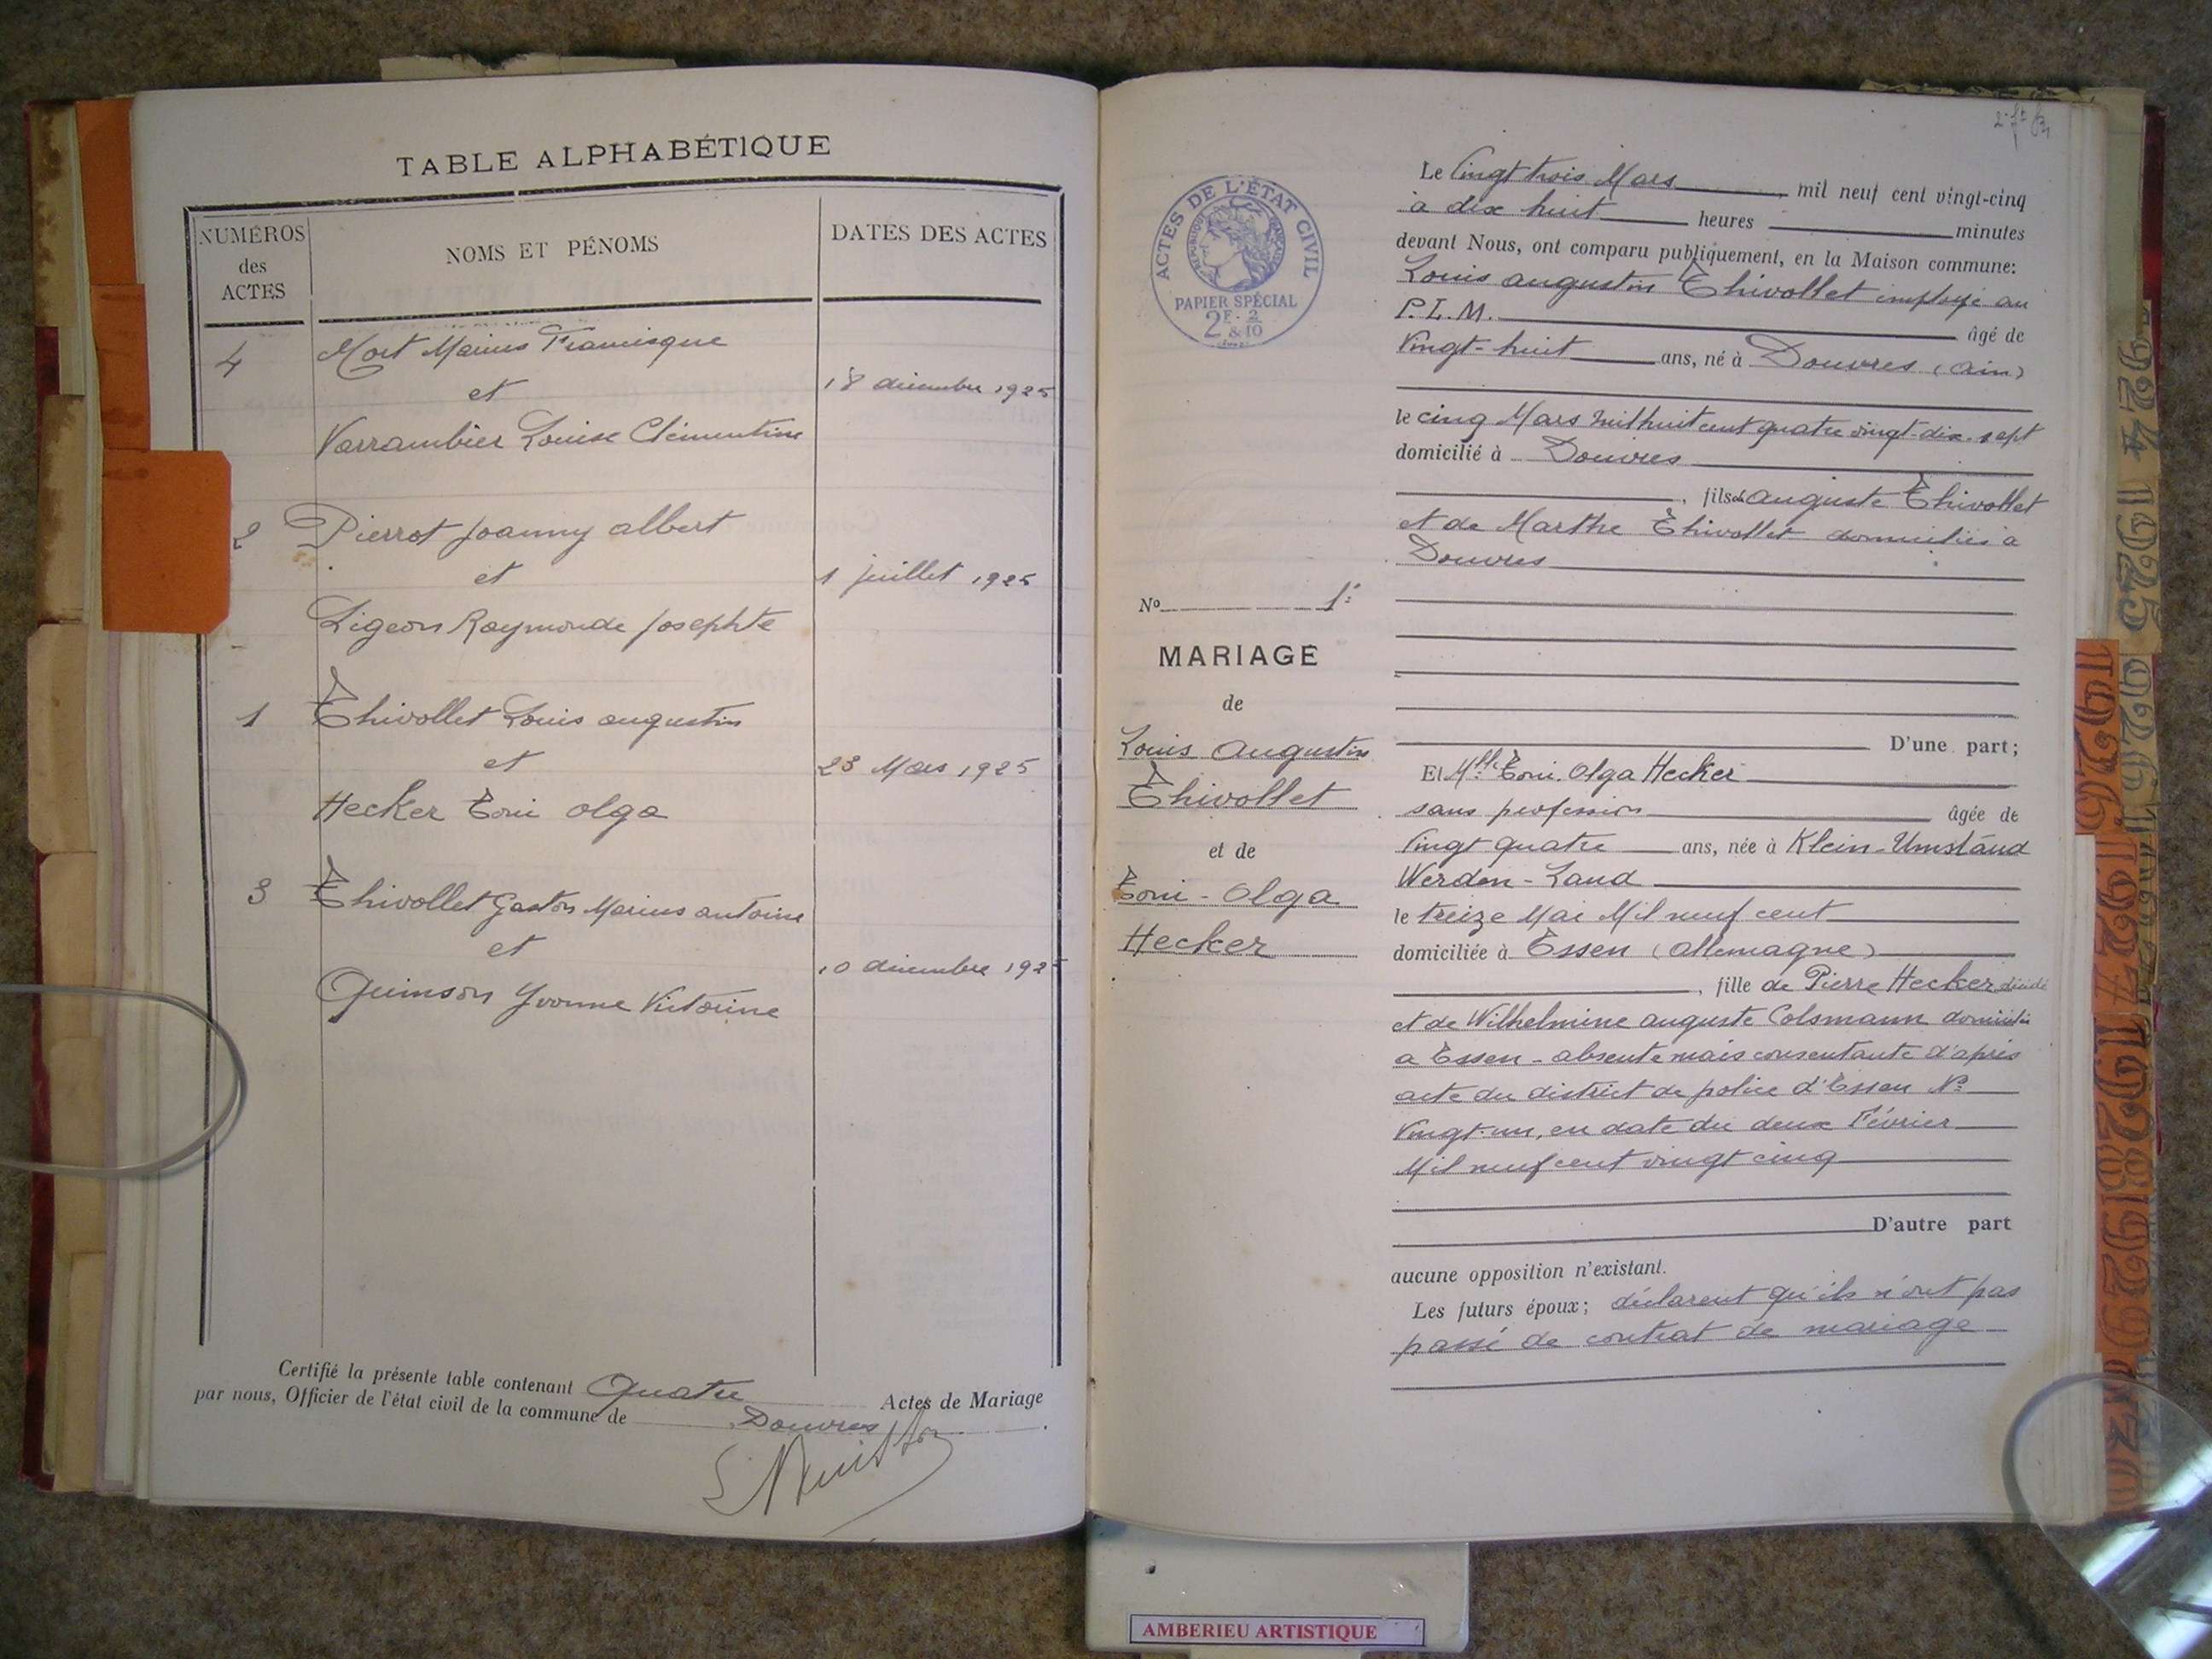 TABLE ALPHABÉTIQUE
NUMÉROS
des
ACTES
NOMS ET PÉNOMS
DATES DES ACTES
4
Mort Marius Francisque
et
18 décembre 1925
Varrambier Louise Clémentine
2
Pierrot Joanny albert
et
1 juillet 1925
Ligeon Raymonde Josephte
1
Thivollet Louis augustin
et
23 Mars 1925
Hecker Toni Olga
3
Thivollet Gaston Marius antoine
et
10 décembre 1925
Quinson Yvonne Victorine
Certifié la présente table contenant Quatre Actes de Mariage
par nous, Officier de l'état civil de la commune de Douvres
ACTES DE L'ÉTAT CIVIL
RÉPUBLIQUE FRANÇAISE
PAPIER SPÉCIAL
2F. 2
&10
No 1:
MARIAGE
de
Louis Augustin
Thivollet
et de
Toni - Olga
Hecker
Le Vingt trois Mars mil neuf cent vingt-cinq
à dix huit heures minutes
devant Nous, ont comparu publiquement, en la Maison commune:
Louis augustin Thivollet employé au
P.L.M. âgé de
Vingt-huit ans, né à Douvres (Ain)
le cinq Mars mil huit cent quatre vingt-dix-sept
domicilié à Douvres
, fils d'auguste Thivollet
et de Marthe Thivollet domiciliés à
Douvres
D'une part;
Et Mlle Toni Olga Hecker
sans profession âgée de
Vingt quatre ans, née à Klein-Umständ
Werden-Land
le treize Mai Mil neuf cent
domiciliée à Essen (Allemagne)
, fille de Pierre Hecker décédé
et de Wilhelmine auguste Colsmann domiciliée
a Essen - absente mais consentante d'après
acte du district de police d'Essen No
Vingt-un, en date du deux Février
Mil neuf cent vingt cinq
D'autre part
aucune opposition n'existant.
Les futurs époux; déclarent qu'ils n'ont pas
passé de contrat de mariage
1924
1925
1926
1925
1927
1928
1929
AMBERIEU ARTISTIQUE